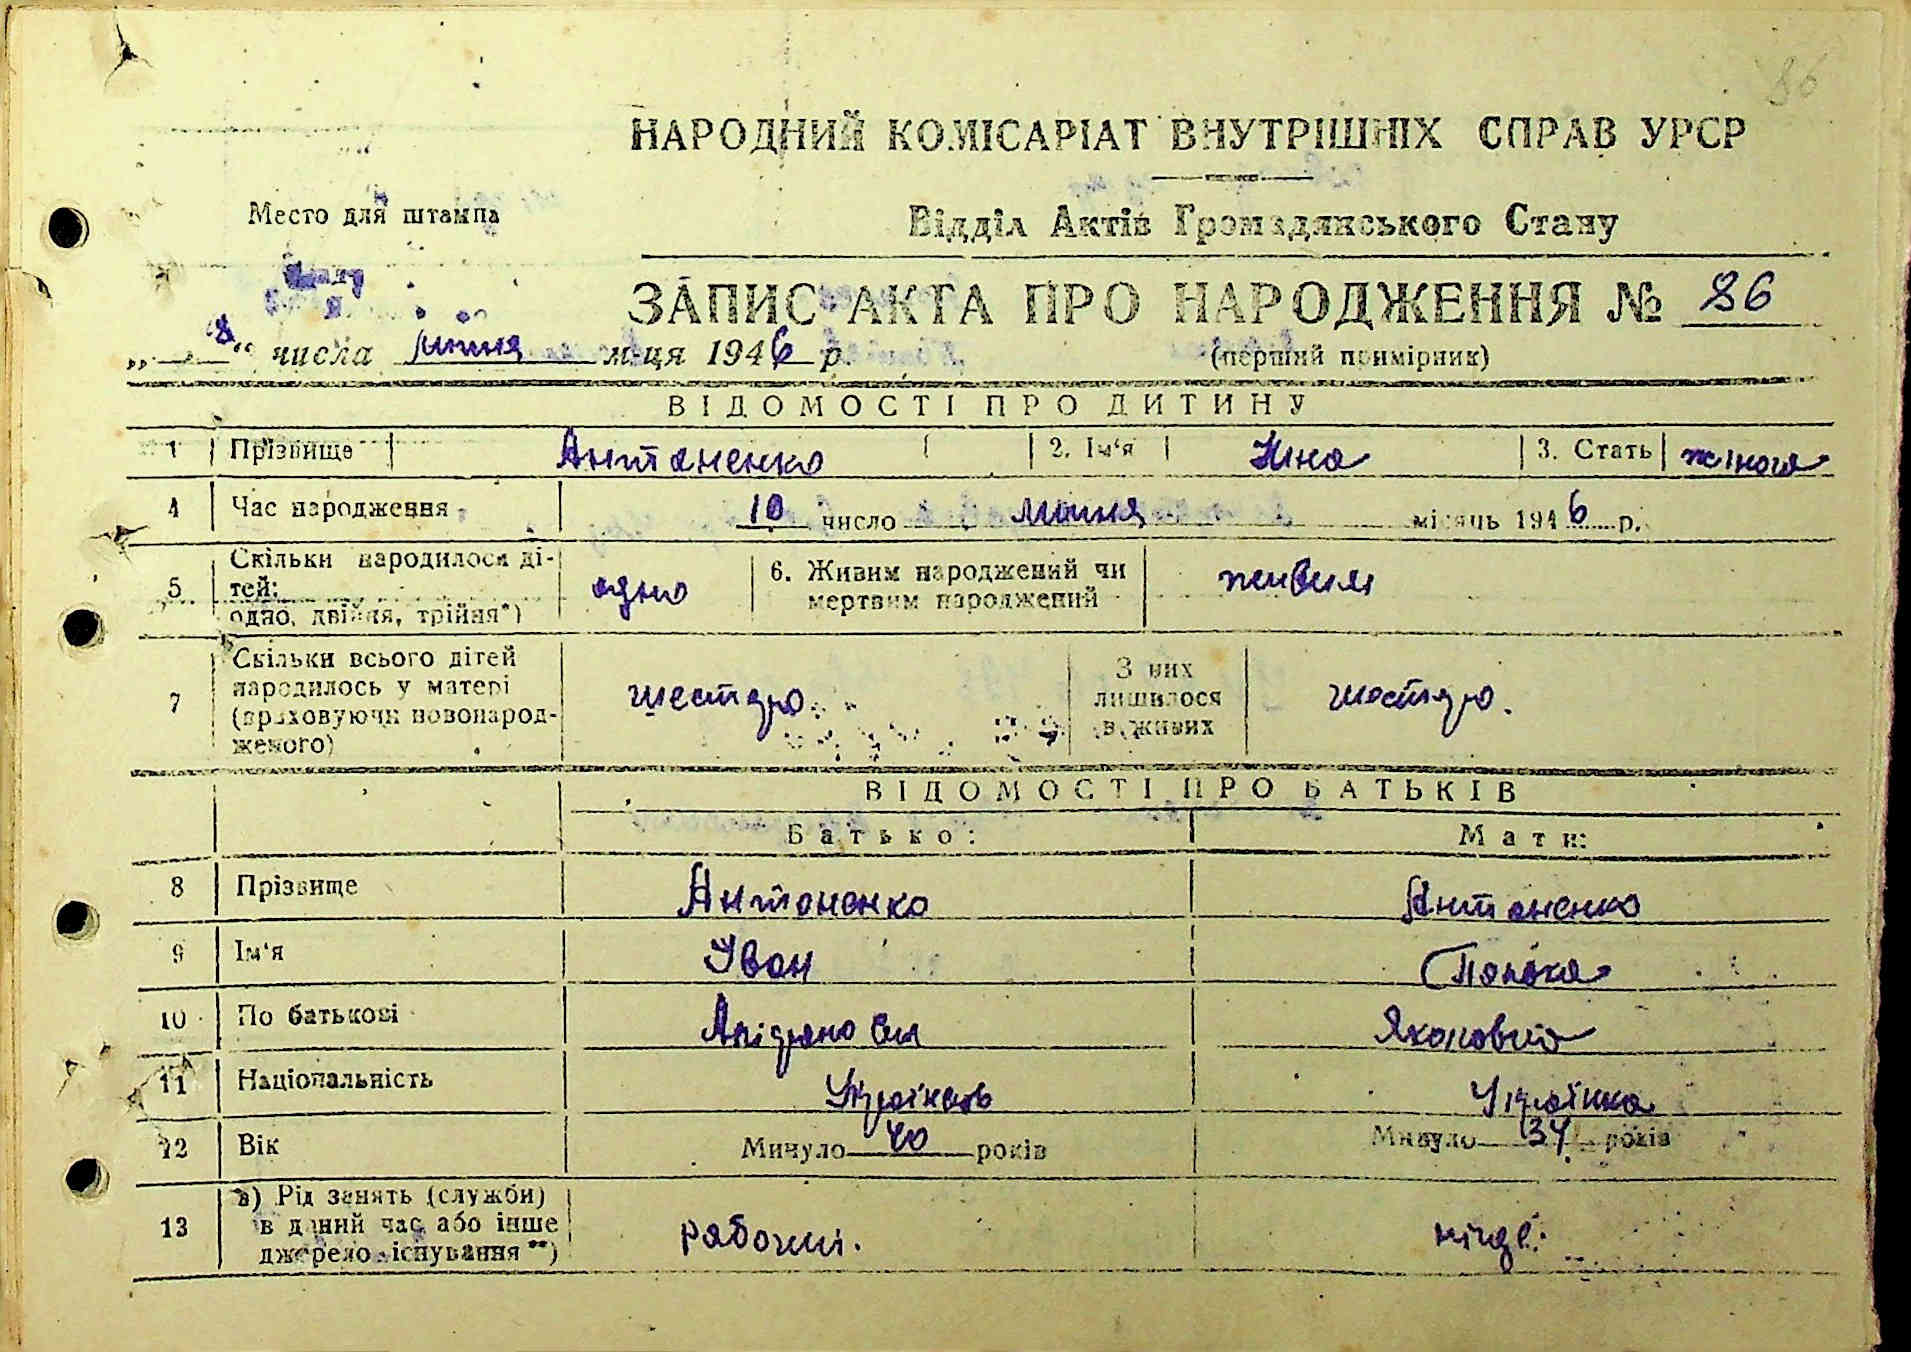 86
НАРОДНИЙ КОМІСАРІАТ ВНУТРІШНІХ СПРАВ УРСР
Место для штампа
Відділ Актів Громадянського Стану
ЗАПИС АКТА ПРО НАРОДЖЕННЯ № 86
„ 8 “ числа липня м-ця 1946 р.
(перший примірник)
ВІДОМОСТІ ПРО ДИТИНУ
1 Прізвище Антоненко 2. Ім'я Ніна 3. Стать жіноча
4 Час народження 10 число липня місяць 1946 р.
5 Скільки народилося ді-
тей:
одно, двійня, трійня*) одно 6. Живим народжений чи
мертвим народжений живим
7 Скільки всього дітей
народилось у матері
(враховуючи новонарод-
женого) шестеро З них
лишилося
в живих шестеро.
ВІДОМОСТІ ПРО БАТЬКІВ
Батько: Мати:
8 Прізвище Антоненко Антоненко
9 Ім'я Іван
10 По батькові
11 Національність Українець Українка
12 Вік Минуло 40 років Минуло років
13 а) Рід занять (служби)
в даний час або інше
джерело існування **) рабочий.